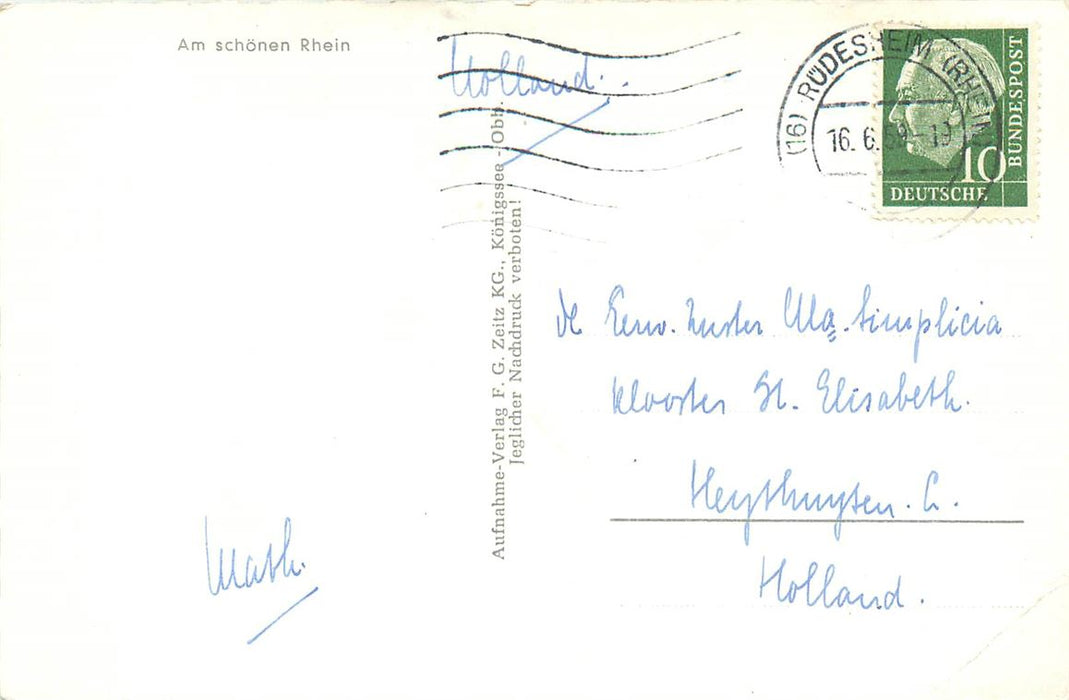 Am schönen Rhein
Holland.
(16) RÜDESHEIM (RHEIN)
16. 6. 59 - 19
DEUTSCHE
BUNDESPOST
10
Aufnahme-Verlag F. G. Zeitz KG., Königssee - Obb.
Jeglicher Nachdruck verboten!
de Eerw. Zuster Ma. Simplicia
Klooster St. Elisabeth.
Heythuysen. L.
Holland.
Math.